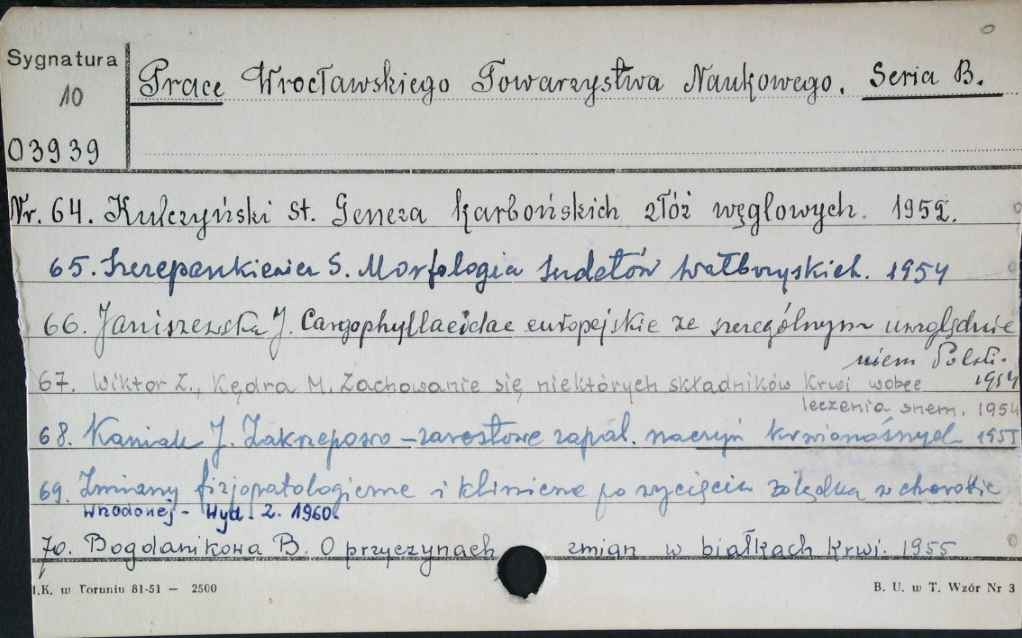 Sygnatura
10
03939
Prace Wrocławskiego Towarzystwa Naukowego. Seria B.
Nr. 64. Kulczyński St. Geneza karbońskich złóż węglowych. 1952.
65. Szczepankiewicz S. Morfologia Sudetów Wałbrzyskich. 1954
66. Janiszewska J. Cargophyllaeidae europejskie ze szczególnym uwzględnie
niem Polski.
1954
67. Wiktor Z., Kędra M. Zachowanie się niektórych składników krwi wobec
leczenia snem. 1954
68. Kaniak J. Zakrzepowo-zarostowe zapal. naczyń krwionośnych 1955
69. Zmiany fizjopatologiczne i kliniczne po wycięciu żołądka w chorobie
wrzodowej - Wyd. 2. 1960.
70. Bogdanikowa B. O przyczynach zmian w białkach krwi. 1955
I.K. w Toruniu 81-51 — 2500
B. U. w T. Wzór Nr 3